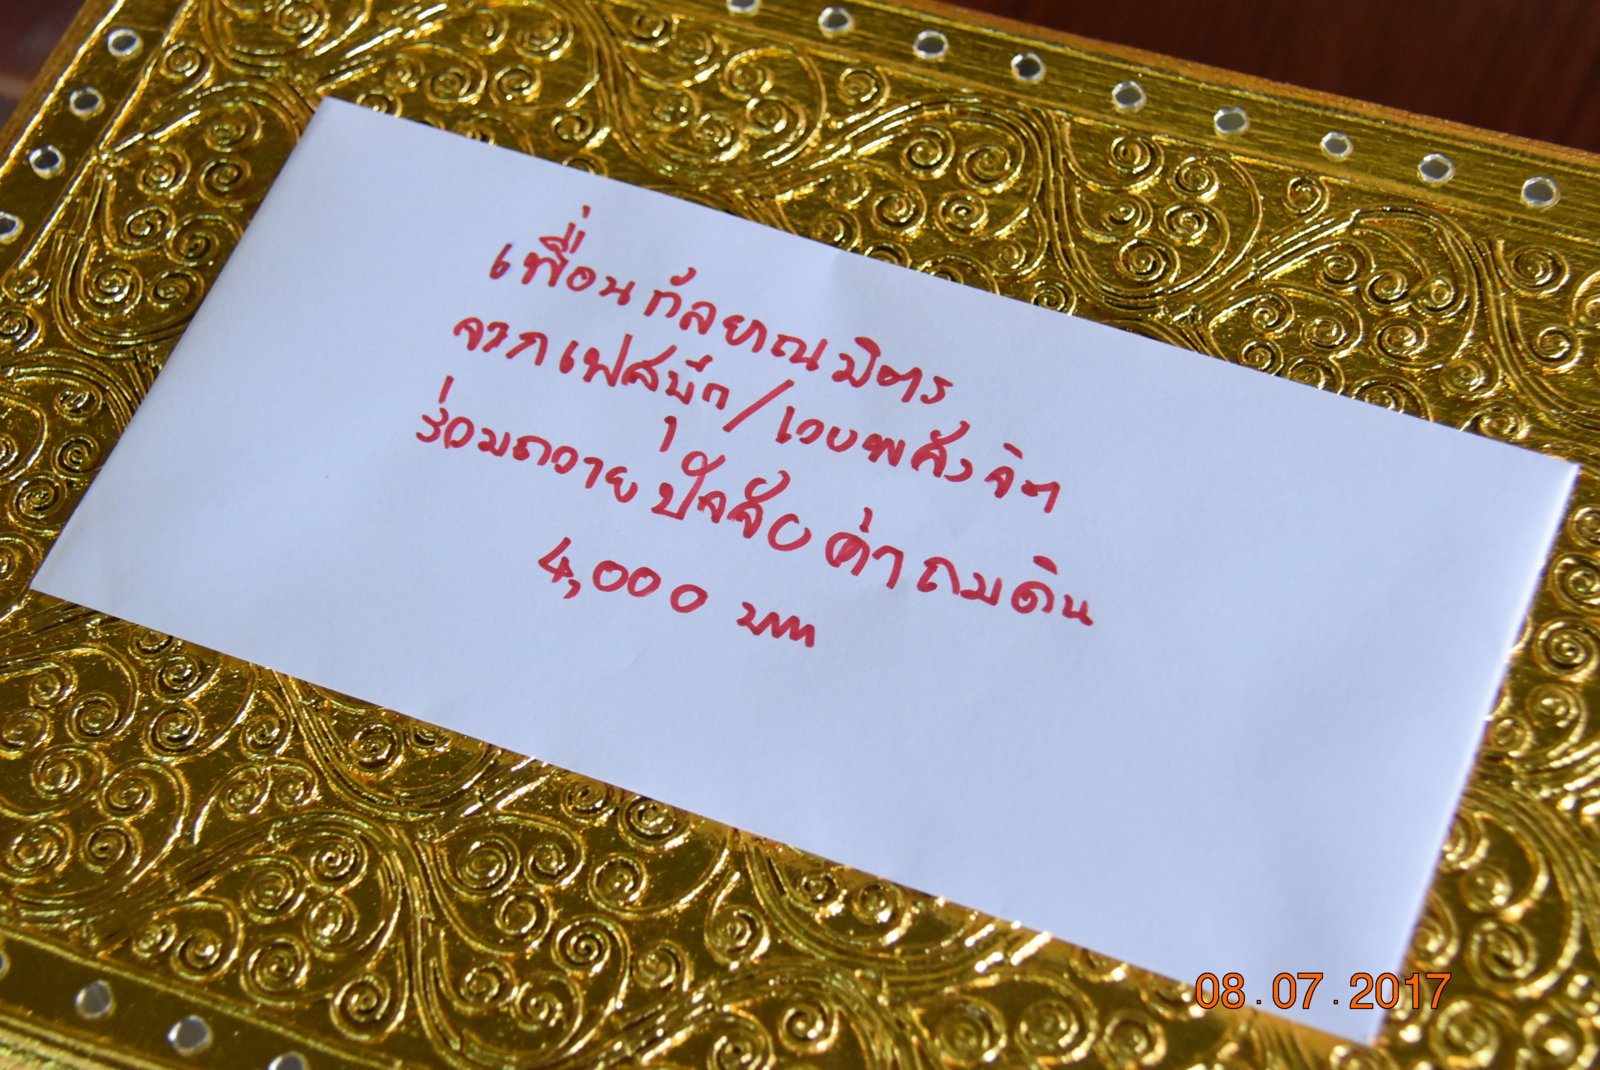 เพื่อนกัลยาณมิตร
จากเฟสบุ๊ก/เวบพลังจิต
ร่วมถวายปัจจัยค่าถมดิน
4,000 บาท
08.07.2017